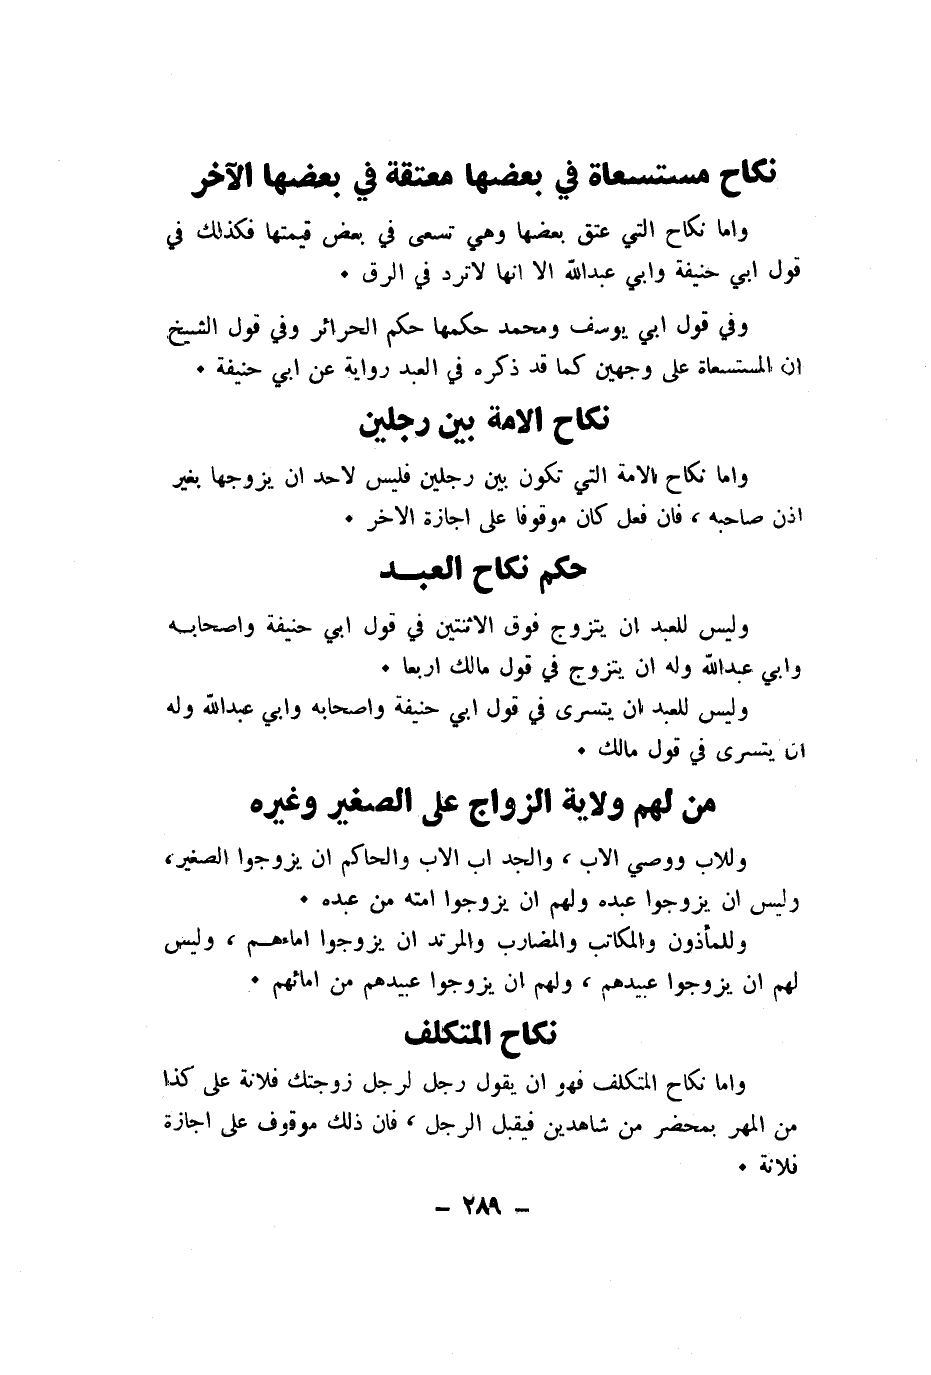 نكاح مستسعاة في بعضها معتقة في بعضها الآخر
واما نكاح التي عتق بعضها وهي تسعى في بعض قيمتها فكذلك في
قول ابي حنيفة وابي عبدالله الا انها لاترد في الرق .
وفي قول ابي يوسف ومحمد حكمها حكم الحرائر وفي قول الشيخ
ان المستسعاة على وجهين كما قد ذكره في العبد رواية عن ابي حنيفة .
نكاح الامة بين رجلين
واما نكاح الامة التي تكون بين رجلين فليس لاحد ان يزوجها بغير
اذن صاحبه ، فان فعل كان موقوفا على اجازة الاخر .
حكم نكاح العبــد
وليس للعبد ان يتزوج فوق الاثنتين في قول ابي حنيفة واصحابــه
وابي عبدالله وله ان يتزوج في قول مالك اربعا .
وليس للعبد ان يتسرى في قول ابي حنيفة واصحابه وابي عبدالله وله
ان يتسرى في قول مالك .
من لهم ولاية الزواج على الصغير وغيره
وللاب ووصي الاب ، والجد اب الاب والحاكم ان يزوجوا الصغير،
وليس ان يزوجوا عبده ولهم ان يزوجوا امته من عبده .
وللمأذون والمكاتب والمضارب والمرتد ان يزوجوا اماءهــم ، وليس
لهم ان يزوجوا عبيدهم ، ولهم ان يزوجوا عبيدهم من امائهم .
نكاح المتكلف
واما نكاح المتكلف فهو ان يقول رجل لرجل زوجتك فلانة على كذا
من المهر بمحضر من شاهدين فيقبل الرجل ، فان ذلك موقوف على اجازة
فلانة .
- ٢٨٩ -